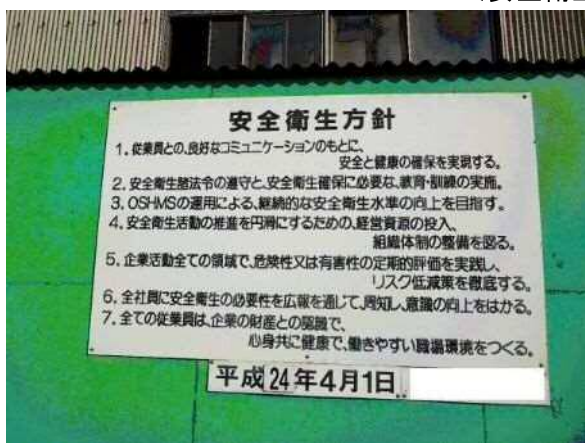 安全衛生方針
1. 従業員との、良好なコミュニケーションのもとに、
安全と健康の確保を実現する。
2. 安全衛生諸法令の遵守と、安全衛生確保に必要な、教育・訓練の実施。
3. OSHMSの運用による、継続的な安全衛生水準の向上を目指す。
4. 安全衛生活動の推進を円滑にするための、経営資源の投入、
組織体制の整備を図る。
5. 企業活動全ての領域で、危険性又は有害性の定期的評価を実践し、
リスク低減策を徹底する。
6. 全社員に安全衛生の必要性を広報を通じて、周知し、意識の向上をはかる。
7. 全ての従業員は、企業の財産との認識で、
心身共に健康で、働きやすい職場環境をつくる。
平成24年4月1日